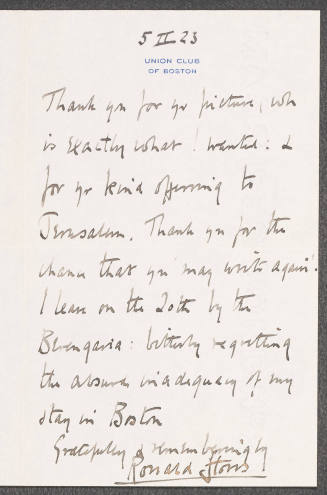 5 II 23
UNION CLUB
OF BOSTON
Thank yu for yr picture, wh
is exactly what I wanted: &
for yr kind offering to
Jerusalem. Thank yu for the
chance that yu 'may write again'.
I leave on the 20th by the
Berengaria: bitterly regretting
the absurd inadequacy of my
stay in Boston
Gratefully & rememberingly
Ronald Storrs